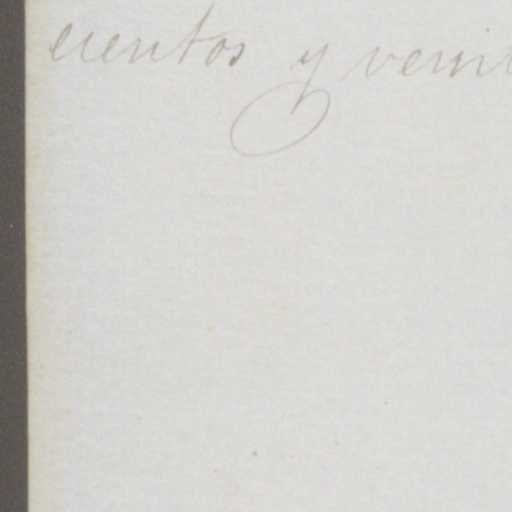 cientos y veint